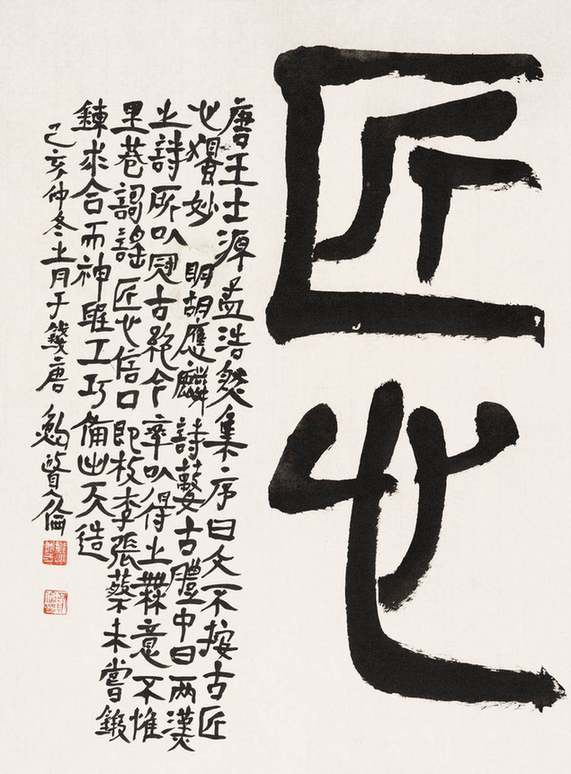 匠心
唐王士源孟浩然集序曰文不按古匠
心獨妙 明胡應麟詩藪古體中曰兩漢
之詩所以冠古絕今率以得之無意不惟
里巷謌謠匠心信口即枚李張蔡未嘗鍛
鍊求合而神聖工巧備出天造
己亥仲冬十一月于錢唐 鮑賢倫